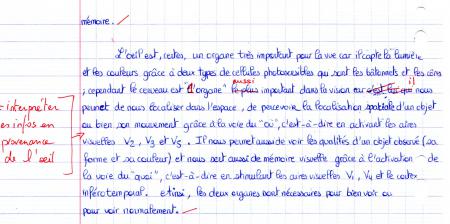 mémoire.
L'oeil est, certes, un organe très important pour la vue car il capte la lumière
et les couleurs grâce à deux types de cellules photosensibles qui sont les bâtonnets et les cônes
; cependant le cerveau est "l'organe" le plus aussi important dans la vision car c'est lui qui il nous
permet de nous localiser dans l'espace, de percevoir la localisation spatiale d'un objet
ou bien son mouvement grâce à la voie du "où", c'est-à-dire en activant les aires
visuelles V2, V3 et V5. Il nous permet aussi de voir les qualités d'un objet observé (sa
forme et sa couleur) et nous sert aussi de mémoire visuelle grâce à l'activation de
la voie du "quoi", c'est-à-dire en stimulant les aires visuelles V1, V4 et le cortex
inférotemporal. Ainsi, les deux organes sont nécessaires pour bien voir ou
pour voir normalement.
+ interpréter
les infos en
provenance
de l'oeil